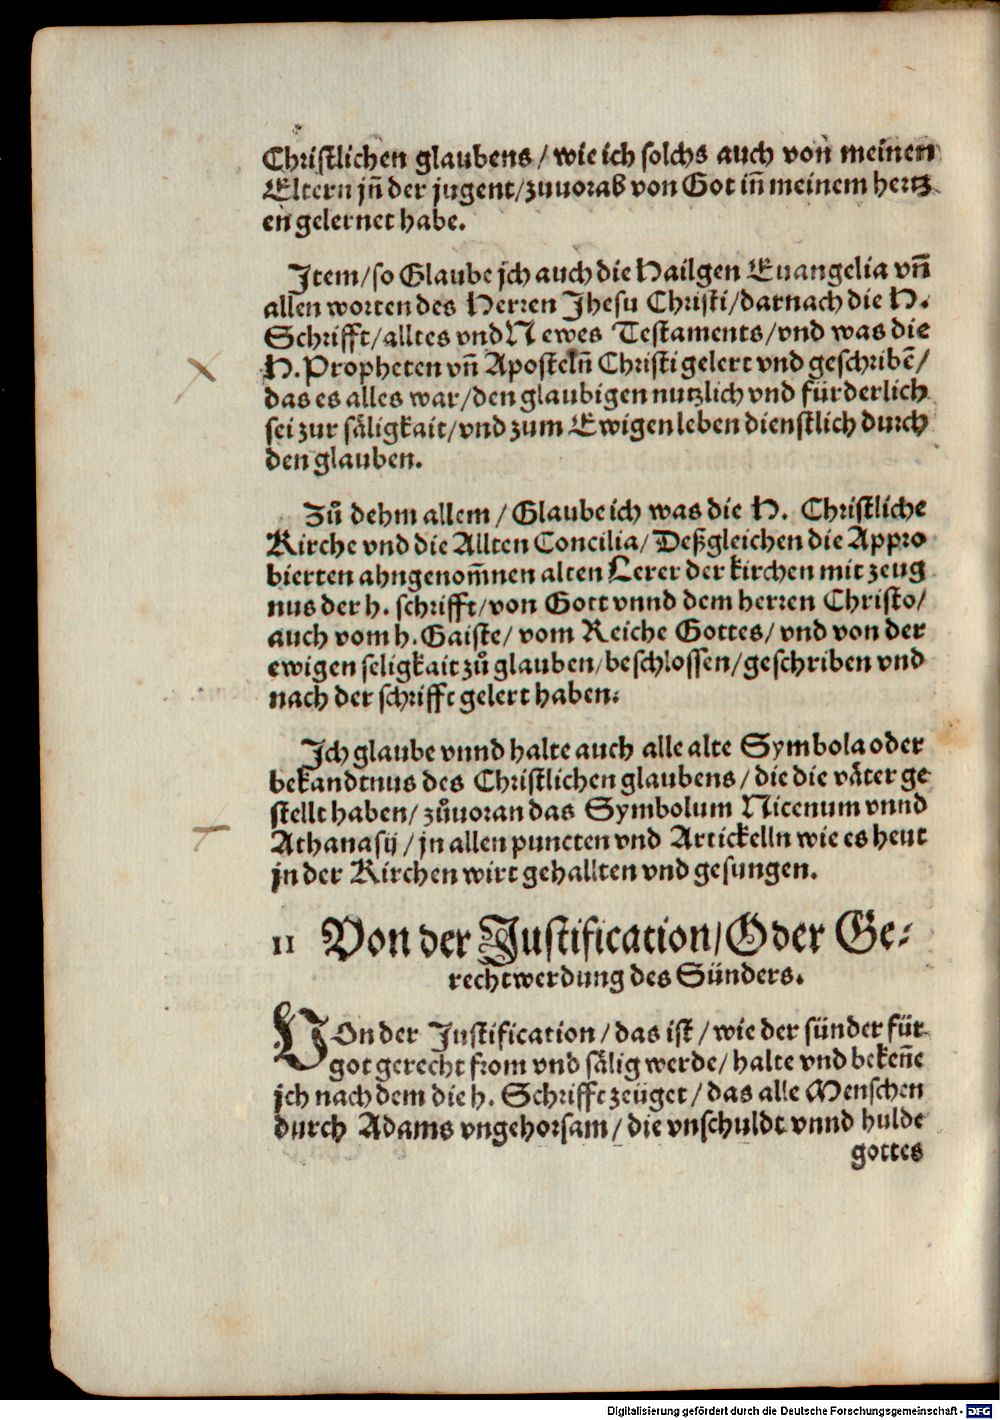 Christlichen glaubens / wie ich solchs auch von meinen
Eltern jn̄ der jugent / zuuorab von Got in̄ meinem hertz
en gelernet habe.
Jtem / so Glaube jch auch die Hailgen Euangelia vn̄
allen worten des Herren Jhesu Christi / darnach die H.
Schrifft / alltes vnd Newes Testaments / vnd was die
H. Propheten vn̄ Aposteln̄ Christi gelert vnd geschribē /
das es alles war / den glaubigen nutzlich vnd fürderlich
sei zur säligkait / vnd zum Ewigen leben dienstlich durch
den glauben.
Zů dehm allem / Glaube ich was die H. Christliche
Kirche vnd die Allten Concilia / Deßgleichen die Appro
bierten ahngenom̄nen alten Lerer der kirchen mit zeug
nus der h. schrifft / von Gott vnnd dem herren Christo /
auch vom h. Gaiste / vom Reiche Gottes / vnd von der
ewigen seligkait zů glauben / beschlossen / geschriben vnd
nach der schrifft gelert haben.
Jch glaube vnnd halte auch alle alte Symbola oder
bekandtnus des Christlichen glaubens / die die väter ge
stellt haben / zůuoran das Symbolum Nicenum vnnd
Athanasij / jn allen puncten vnd Artickelln wie es heut
jn der Kirchen wirt gehallten vnd gesungen.
11 Von der Justification / Oder Ge⸗
rechtwerdung des Sünders.
VOn der Justification / das ist / wie der sünder für
got gerecht from vnd sälig werde / halte vnd beken̄e
jch nach dem die h. Schrifft zeüget / das alle Menschen
durch Adams vngehorsam / die vnschuldt vnnd hulde
gottes
Digitalisierung gefördert durch die Deutsche Forschungsgemeinschaft - DFG